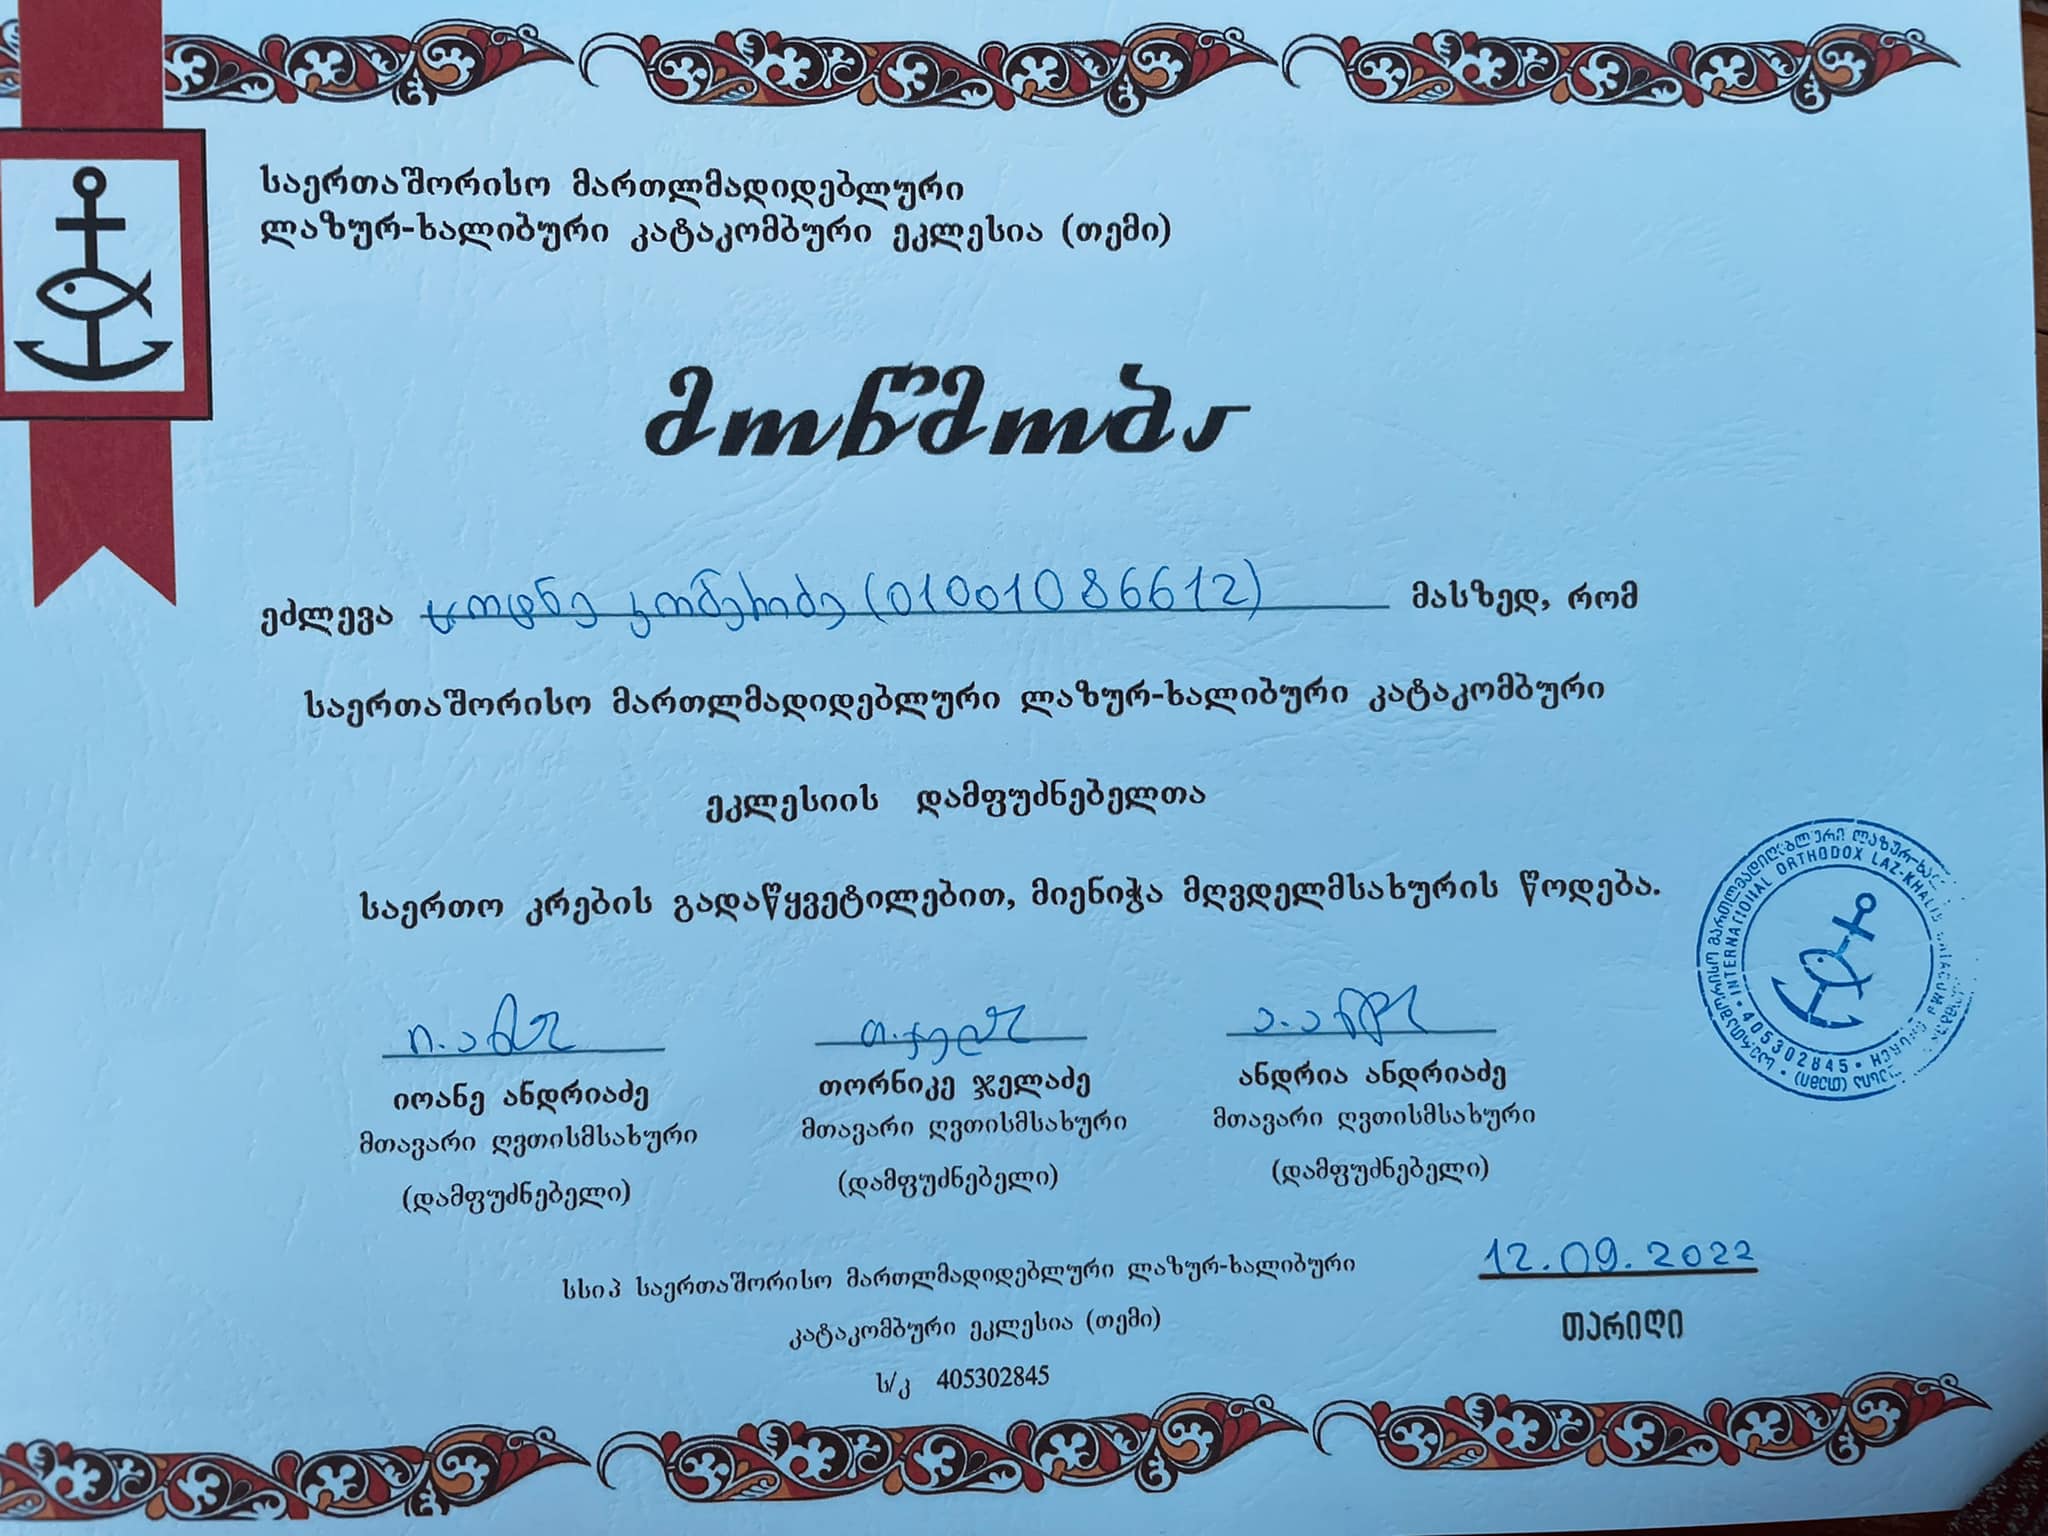 საერთაშორისო მართლმადიდებლური
ლაზურ-ხალიბური კატაკომბური ეკლესია (თემი)
მოწმობა
ეძლევა (01001086612) მასზედ, რომ
საერთაშორისო მართლმადიდებლური ლაზურ-ხალიბური კატაკომბური
ეკლესიის დამფუძნებელთა
საერთო კრების გადაწყვეტილებით, მიენიჭა მღვდელმსახურის წოდება.
იოანე ანდრიაძე
მთავარი ღვთისმსახური
(დამფუძნებელი)
თორნიკე ჯელაძე
მთავარი ღვთისმსახური
(დამფუძნებელი)
ანდრია ანდრიაძე
მთავარი ღვთისმსახური
(დამფუძნებელი)
საერთაშორისო მართლმადიდებლური ლაზურ-ხალ
INTERNATIONAL ORTHODOX LAZ-KHALIB CHURCH
405302845
(თემი)
12.09.2022
თარიღი
სსიპ საერთაშორისო მართლმადიდებლური ლაზურ-ხალიბური
კატაკომბური ეკლესია (თემი)
ს/კ 405302845